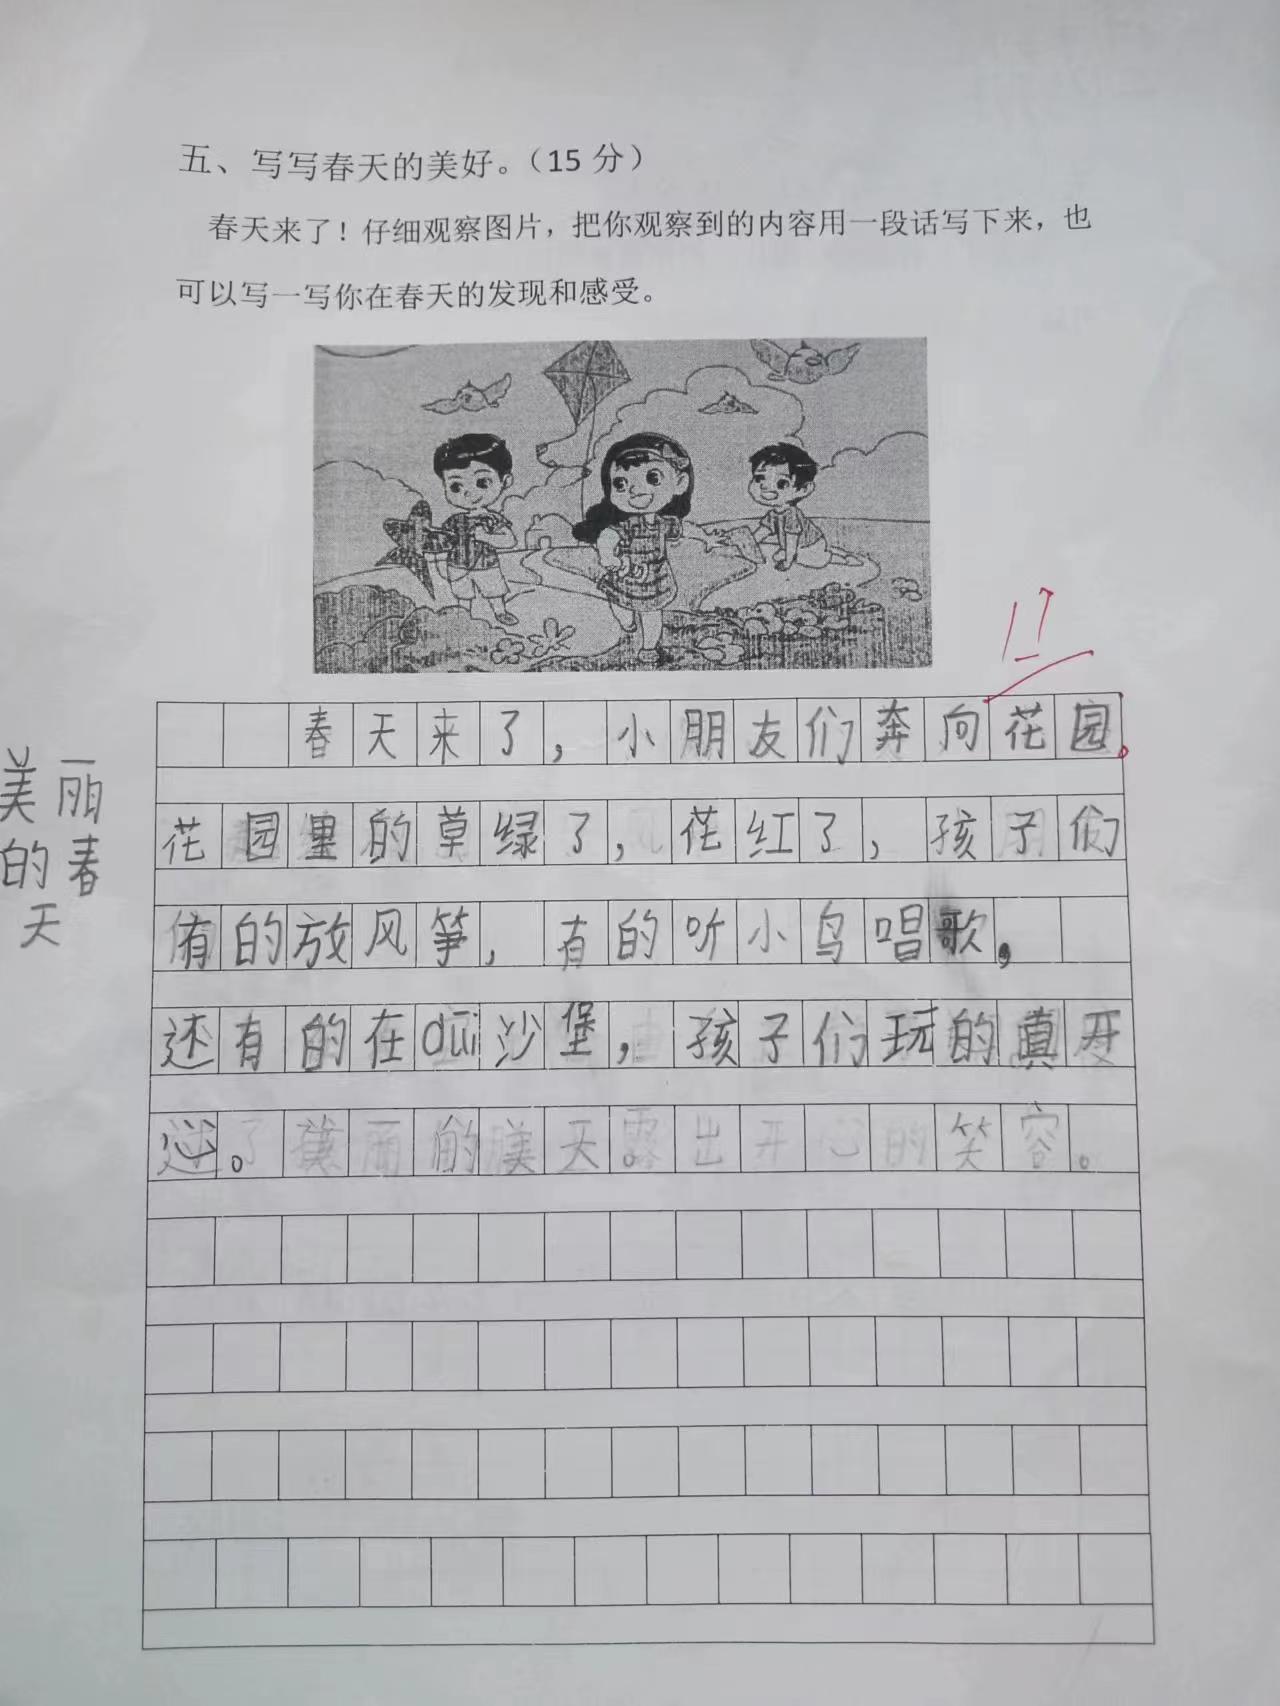 五、写写春天的美好。（15 分）
春天来了！仔细观察图片，把你观察到的内容用一段话写下来，也
可以写一写你在春天的发现和感受。
11
美丽
的春
天
春天来了，小朋友们奔向花园。
花园里的草绿了，花红了，孩子们
有的放风筝，有的听小鸟唱歌，
还有的在duī沙堡，孩子们玩的真开
心。
露出开心的笑容。